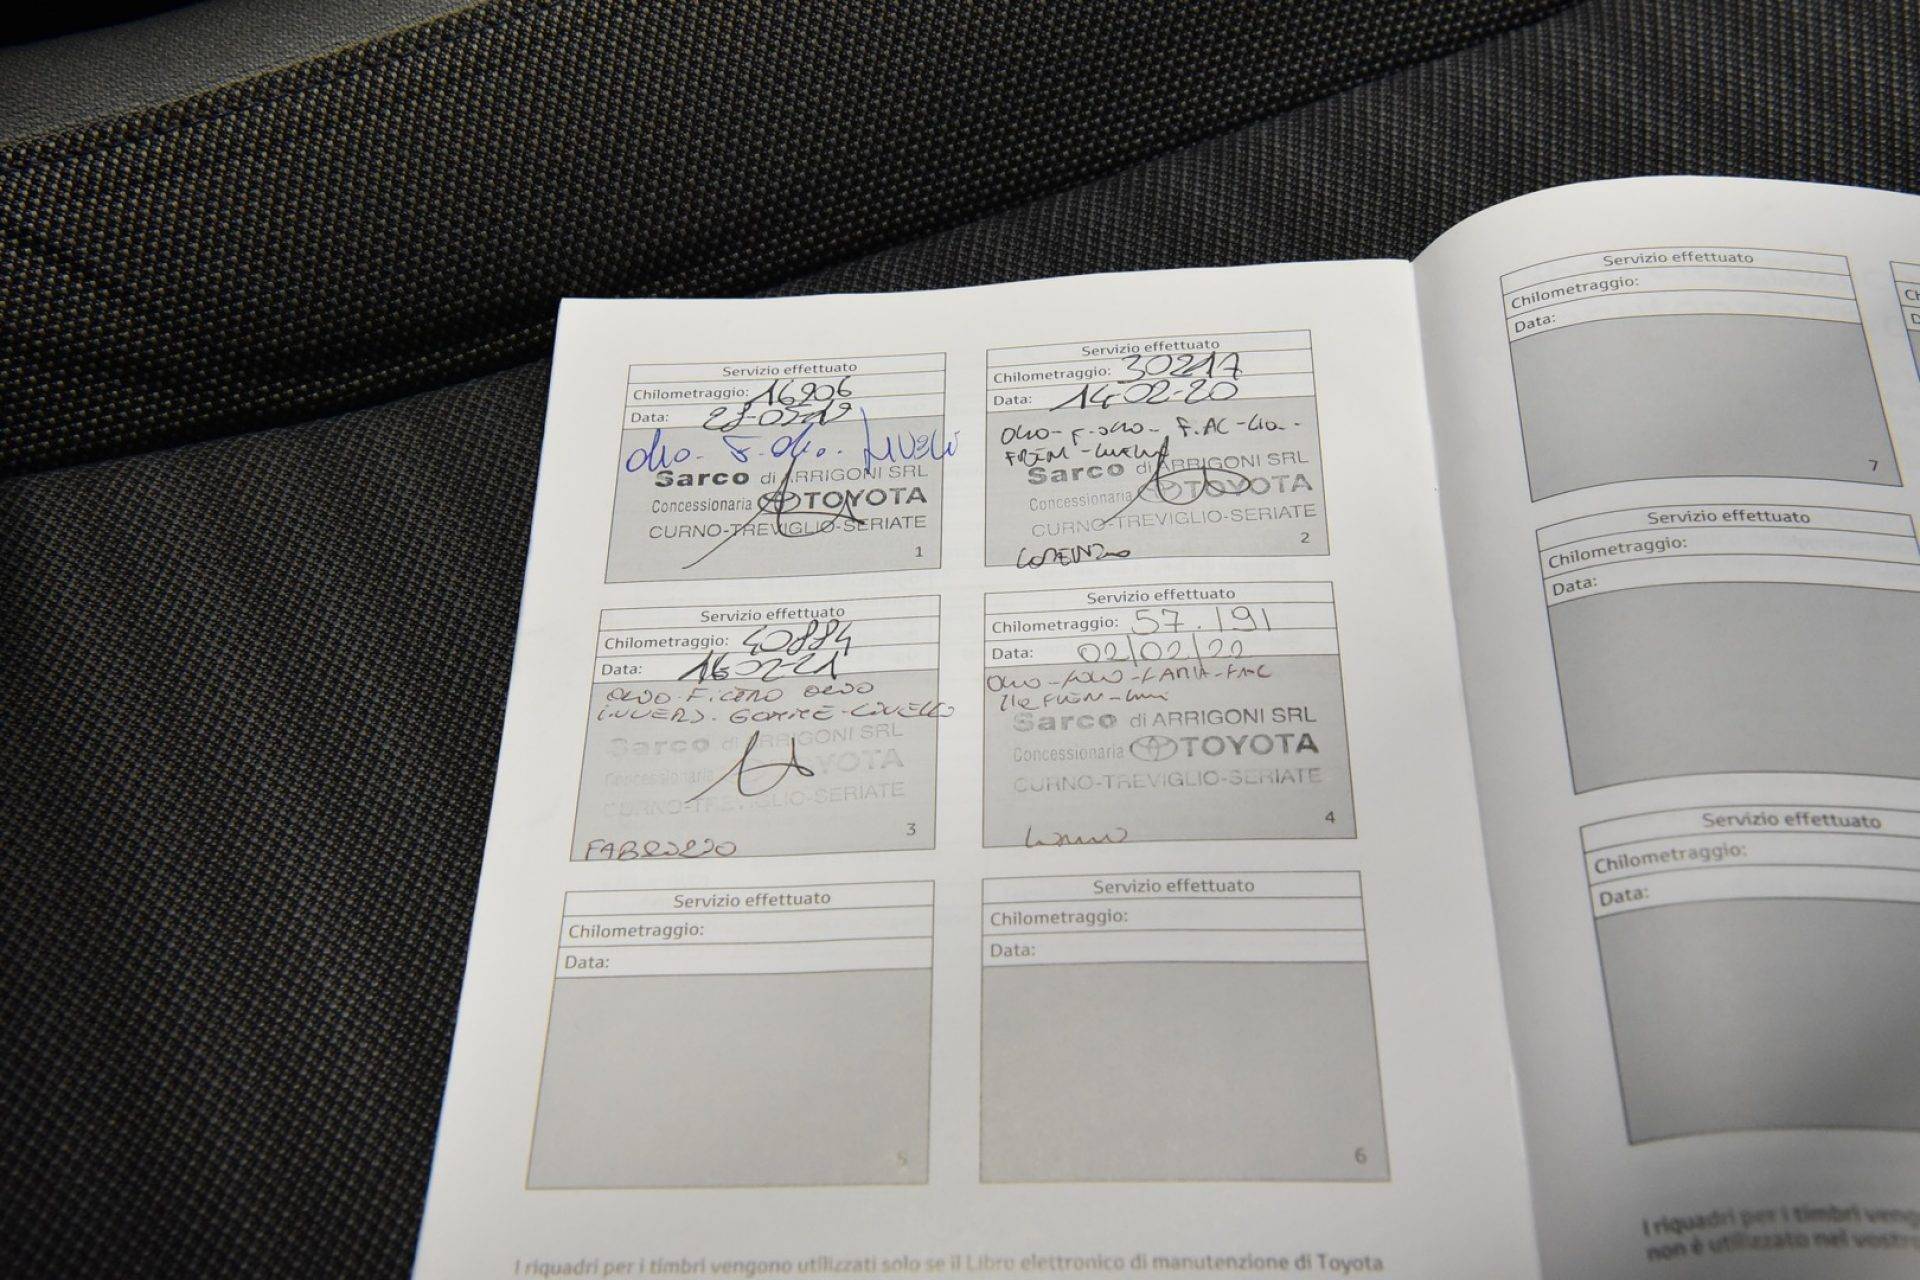 Servizio effettuato
Chilometraggio: 16906
Data:
Olio - F. Olio.
Sarco di ARRIGONI SRL
Concessionaria TOYOTA
CURNO-TREVIGLIO-SERIATE
1
Servizio effettuato
Chilometraggio: 30217
Data: 14-02-20
Sarco di ARRIGONI SRL
Concessionaria TOYOTA
CURNO-TREVIGLIO-SERIATE
LORENZO
2
Servizio effettuato
Chilometraggio: 40884
Data: 16-02-21
Sarco di ARRIGONI SRL
Concessionaria TOYOTA
CURNO-TREVIGLIO-SERIATE
3
FABRIZIO
Servizio effettuato
Chilometraggio: 57.191
Data: 02/02/22
Sarco di ARRIGONI SRL
Concessionaria TOYOTA
CURNO-TREVIGLIO-SERIATE
4
Servizio effettuato
Chilometraggio:
Data:
5
Servizio effettuato
Chilometraggio:
Data:
6
I riquadri per i timbri vengono utilizzati solo se il Libro elettronico di manutenzione di Toyota
Servizio effettuato
Chilometraggio:
Data:
7
Servizio effettuato
Chilometraggio:
Data:
Servizio effettuato
Chilometraggio:
Data:
I riquadri per i timbri veng
non è utilizzato nel vostro